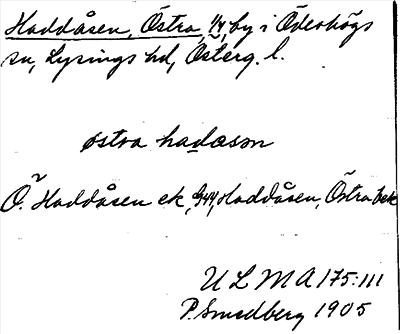 Haddåsen, Östra, 1/4, by i Ödeshögs
sn, Lysings hd, Österg. l.
østra hadåsən
Ö. Haddåsen ek, Haddåsen, Östra bek
ULMA 175:111
P. Smedberg 1905